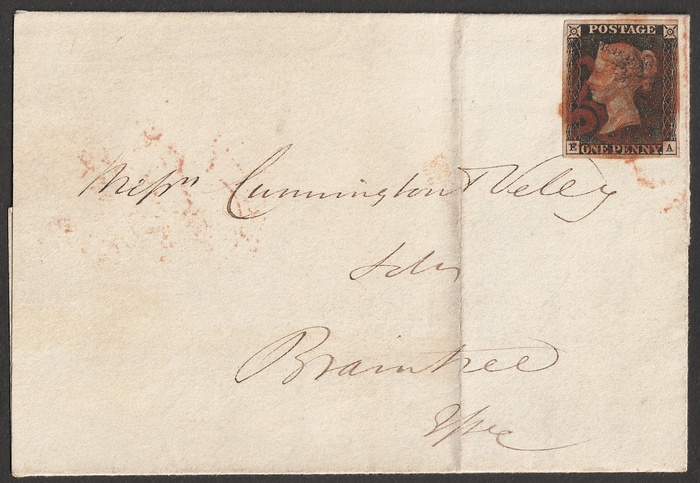 POSTAGE
E A
ONE PENNY
Messrs Cunnington & Veley
Solrs
Braintree
Essex